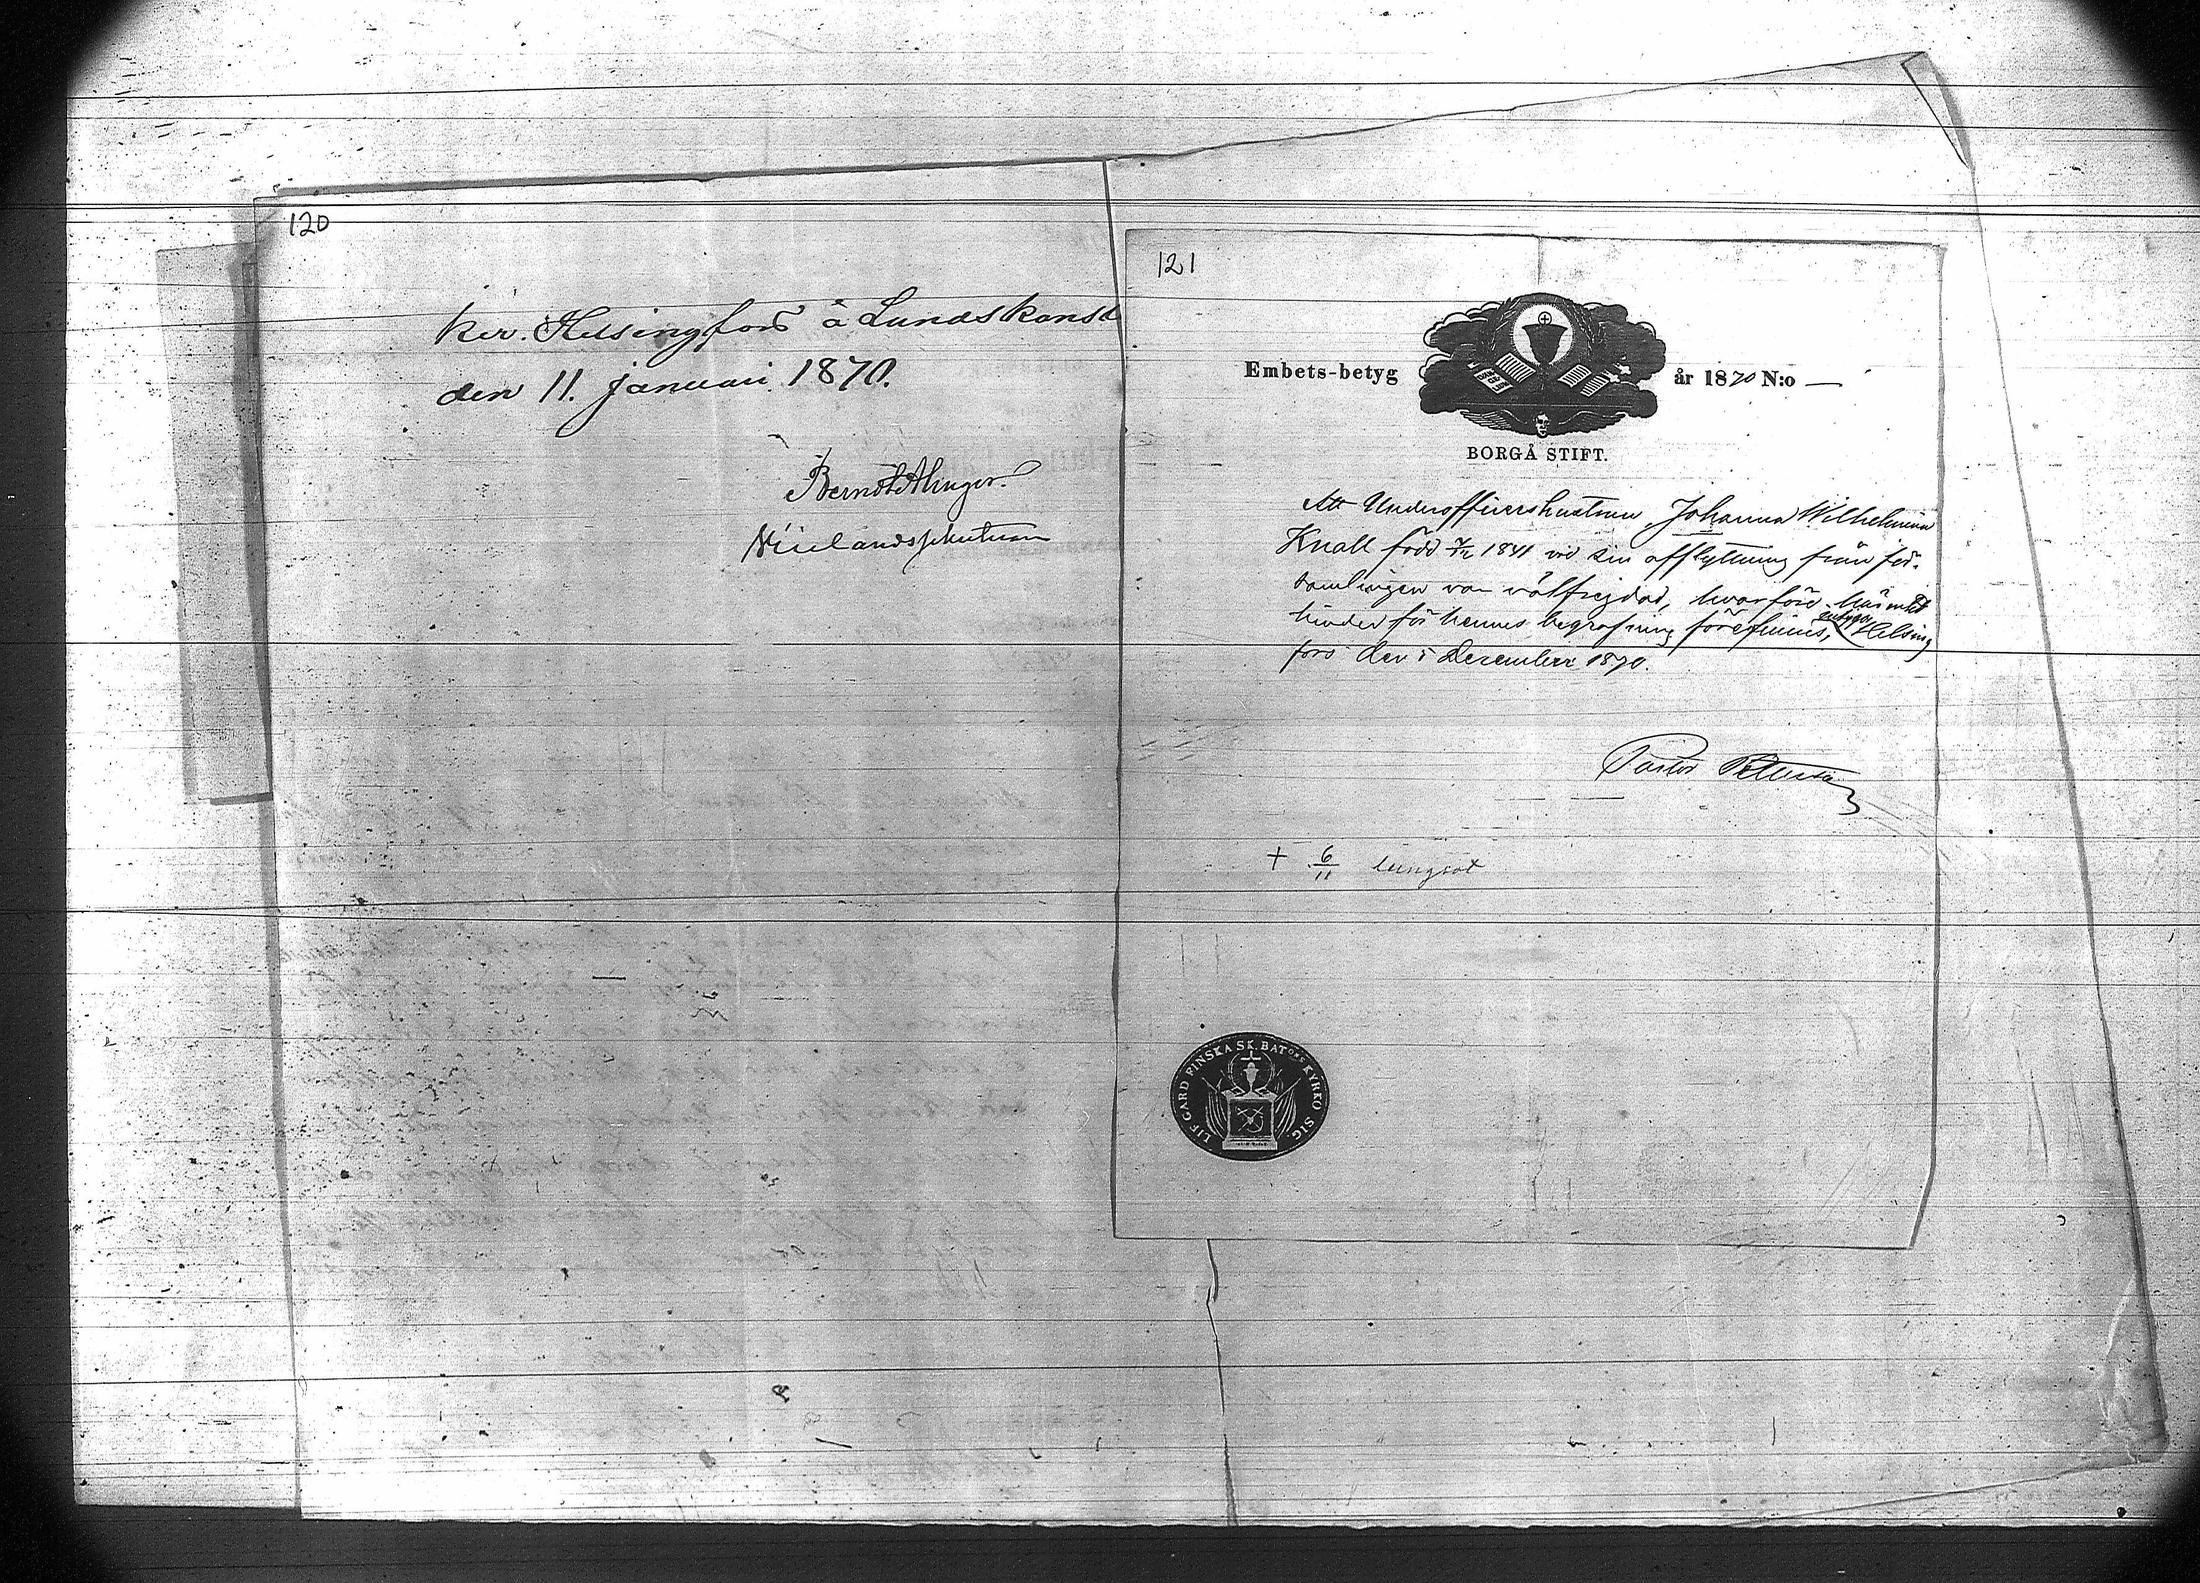 120
Helsingfors å Landskansli
den 11. januari 1870.
121
Embets-betyg år 1870 N:o —
BORGÅ STIFT.
Att Underofficershustrun Johanna Wilhelmina
Knall född 1841 vid sin afflyttning från för-
samlingen var välfrejdad, hvarföre
hinder för hennes begrafning förefinnes, Helsing
fors den 5 December 1870.
Pastor
+ 6/11 lungsot
LIF GARD. FINSKA SK. BAT:ONS KYRKO SIG.